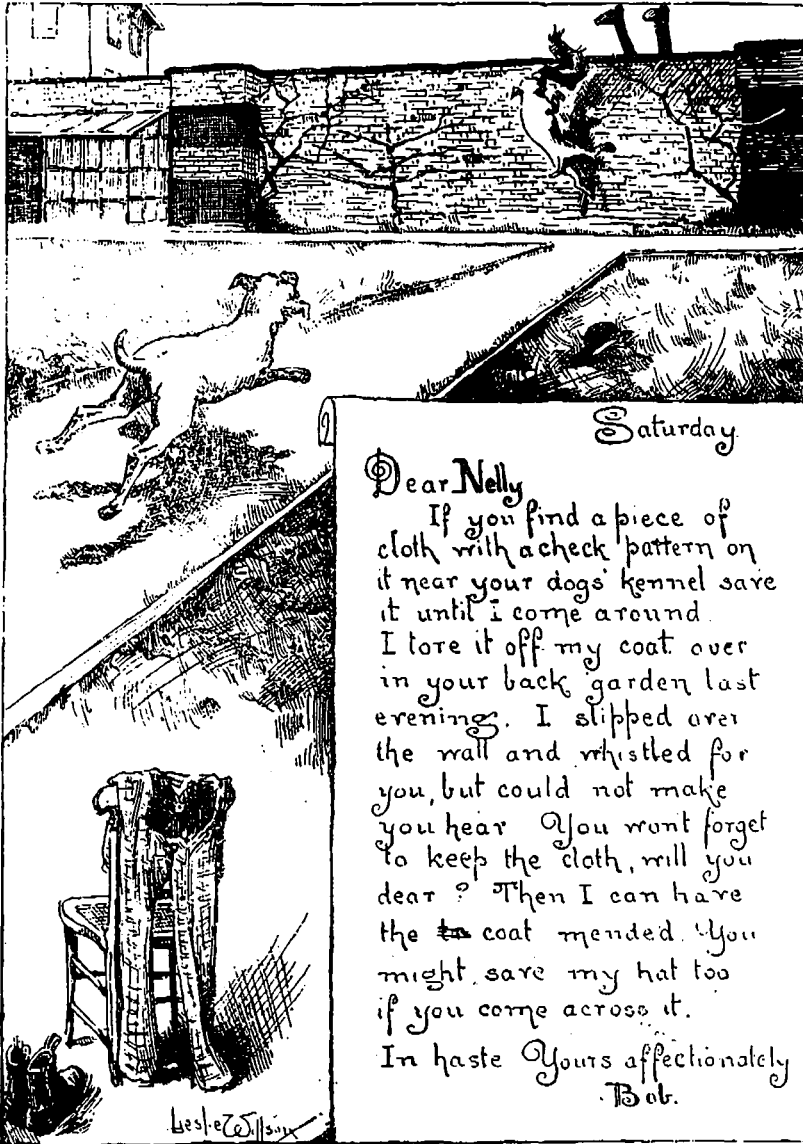 Saturday
Dear Nelly
If you find a piece of
cloth with a check pattern on
it near your dogs' kennel save
it until i come around.
I tore it off my coat over
in your back garden last
evening. I slipped over
the wall and whistled for
you, but could not make
you hear You wont forget
to keep the cloth, will you
dear? Then I can have
the coat mended. You
might save my hat too
if you come across it.
In haste Yours affectionately
Bob.
Leslie Willson